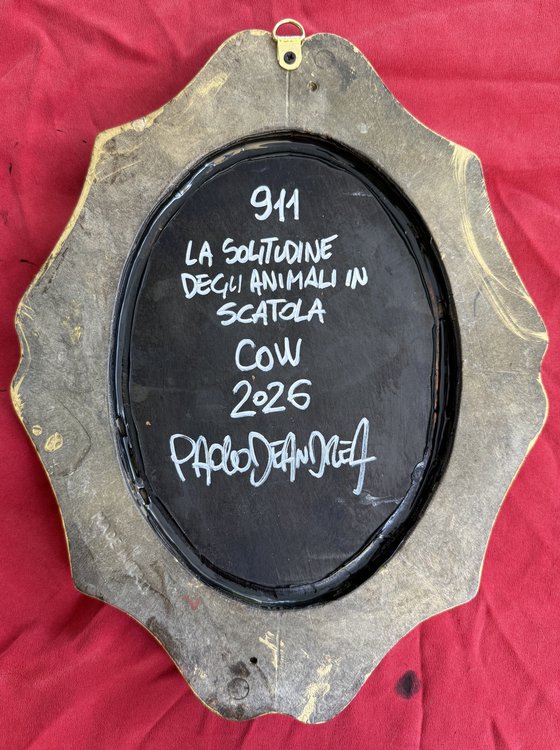 911
LA SOLITUDINE
DEGLI ANIMALI IN
SCATOLA
COW
2026
PAOLODEANDREA